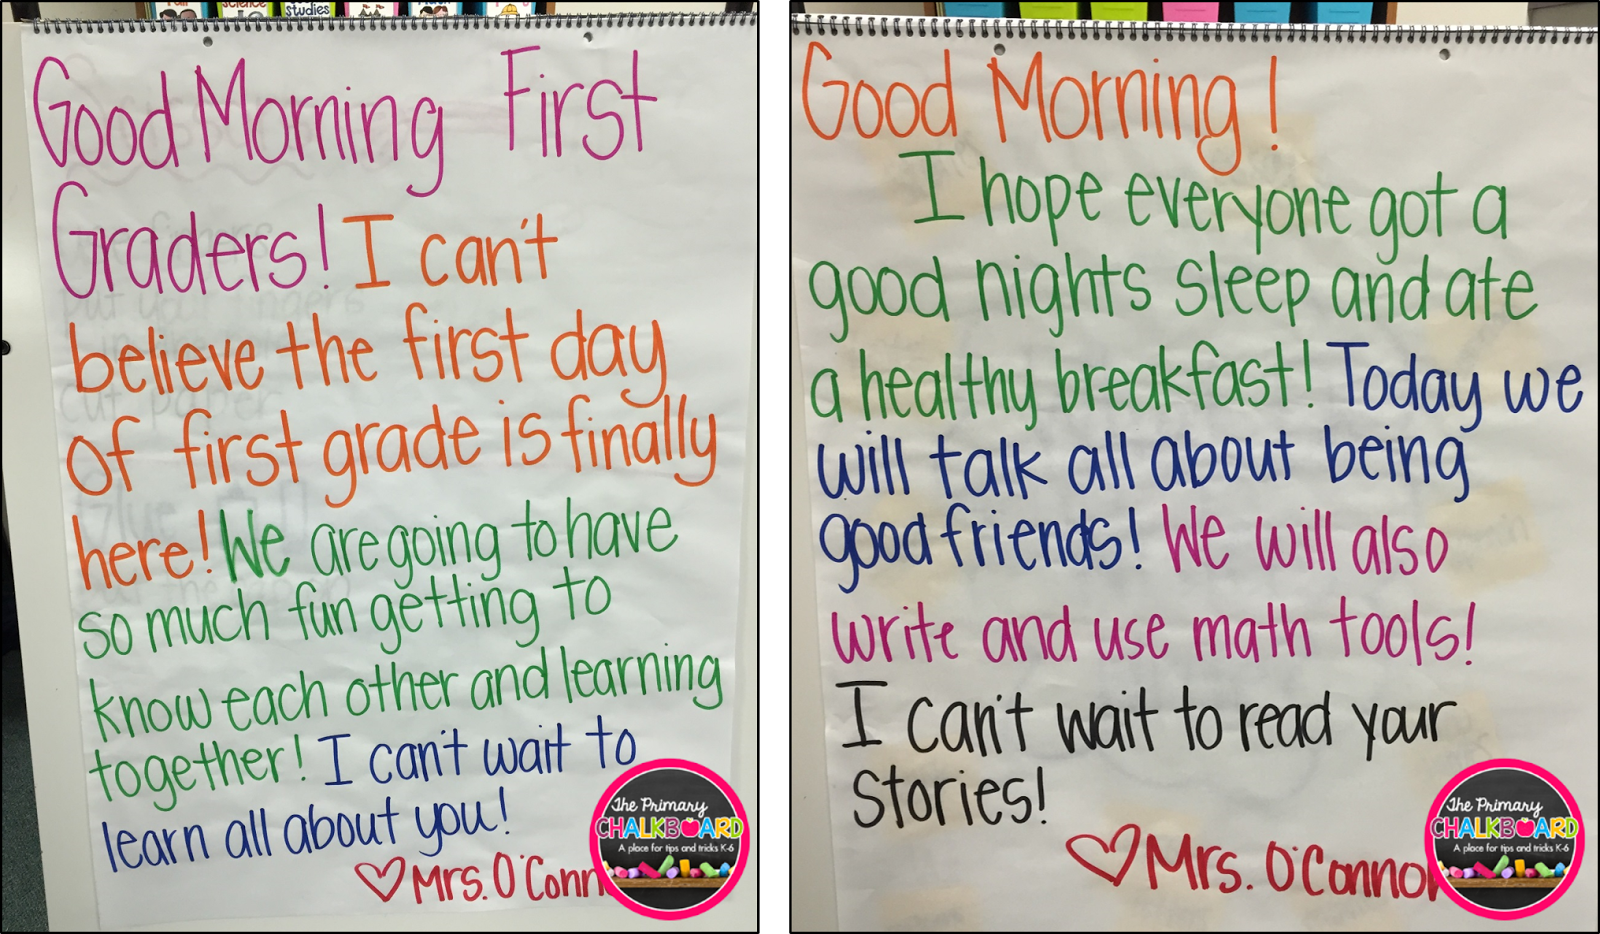 Studies
Good Morning First
Graders! I can't
believe the first day
of first grade is finally
here! We are going to have
so much fun getting to
know each other and learning
together! I can't wait to
learn all about you!
♡ Mrs. O'Conn
The Primary
CHALKBOARD
A place for tips and tricks K-6
Good Morning!
I hope everyone got a
good nights sleep and ate
a healthy breakfast! Today we
will talk all about being
good friends! We will also
write and use math tools!
I can't wait to read your
stories!
♡ Mrs. O'Connor
The Primary
CHALKBOARD
A place for tips and tricks K-6